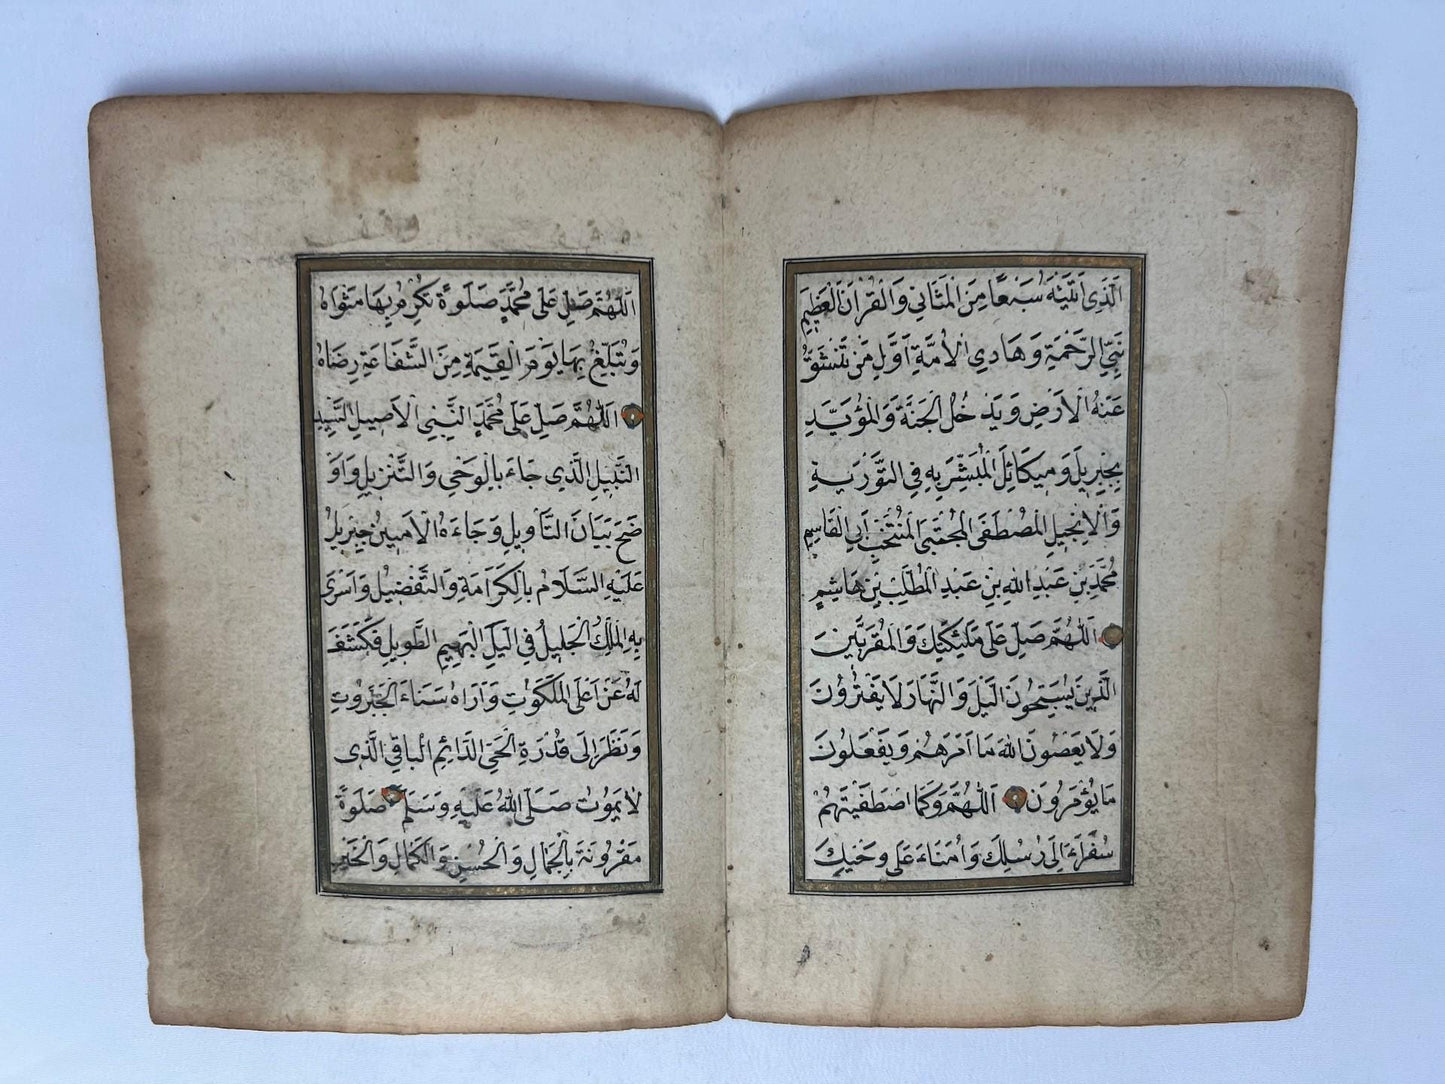 الَّذِى اٰتَيْتَهُ سَبْعًا مِنَ الْمَثَانِى وَالْقُرْاٰنَ الْعَظِيمِ
نَبِيِّ الرَّحْمَةِ وَهَادِى الْاُمَّةِ اَوَّلِ مَنْ تَنْشَقُّ
عَنْهُ الْاَرْضُ وَيَدْخُلُ الْجَنَّةَ وَالْمُؤَيَّدِ
بِجِبْرِيلَ وَمِيكَائِلَ الْمُبَشَّرِ بِهِ فِى التَّوْرَيةِ
وَالْاِنْجِيلِ الْمُصْطَفَى الْمُجْتَبَى الْمُنْتَخَبِ اَبِى الْقَاسِمِ
مُحَمَّدِ بْنِ عَبْدِ اللهِ بْنِ عَبْدِ الْمُطَّلِبِ بْنِ هَاشِمٍ
اَللّٰهُمَّ صَلِّ عَلَى مَلٰئِكَتِكَ وَالْمُقَرَّبِينَ
الَّذِينَ يُسَبِّحُونَ الَّيْلَ وَالنَّهَارَ لَا يَفْتُرُونَ
وَلَا يَعْصُونَ اللهَ مَا اَمَرَهُمْ وَيَفْعَلُونَ
مَا يُؤْمَرُونَ اَللّٰهُمَّ وَكَمَا اصْطَفَيْتَهُمْ
سُفَرَاءَ اِلَى رُسُلِكَ وَاُمَنَاءَ عَلَى وَحْيِكَ
اَللّٰهُمَّ صَلِّ عَلَى مُحَمَّدٍ صَلٰوةً تُكْرِمُ بِهَا مَثْوَاهُ
وَتُبَلِّغُ بِهَا يَوْمَ الْقِيٰمَةِ مِنَ الشَّفَاعَةِ رِضَاهُ
اَللّٰهُمَّ صَلِّ عَلَى مُحَمَّدٍ النَّبِيِّ الْاَصِيلِ السَّيِّدِ
النَّبِيلِ الَّذِى جَاءَ بِالْوَحْىِ وَالتَّنْزِيلِ وَاَوْ
ضَحَ بَيَانَ التَّأْوِيلِ وَجَاءَهُ الْاَمِينُ جِبْرِيلُ
عَلَيْهِ السَّلَامُ بِالْكَرَامَةِ وَالتَّفْضِيلِ وَاَسْرٰى
بِهِ الْمَلِكُ الْجَلِيلُ فِى الَّيْلِ الْبَهِيمِ الطَّوِيلِ فَكَشَفَ
لَهُ عَنْ اَعْلَى الْمَلَكُوتِ وَاَرَاهُ سَنَاءَ الْجَبَرُوتِ
وَنَظَرَ اِلَى قُدْرَةِ الْحَىِّ الدَّائِمِ الْبَاقِى الَّذِى
لَا يَمُوتُ صَلَّى اللهُ عَلَيْهِ وَسَلَّمَ صَلٰوةً
مَقْرُونَةً بِالْجَمَالِ وَالْحُسْنِ وَالْكَمَالِ وَالْخَيْرِ